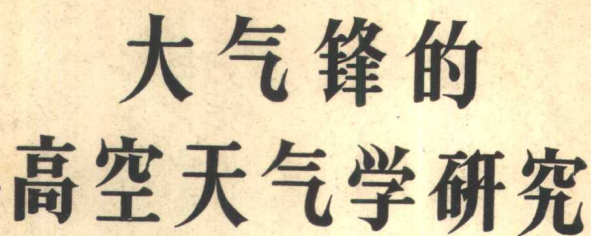 大气锋的
高空天气学研究